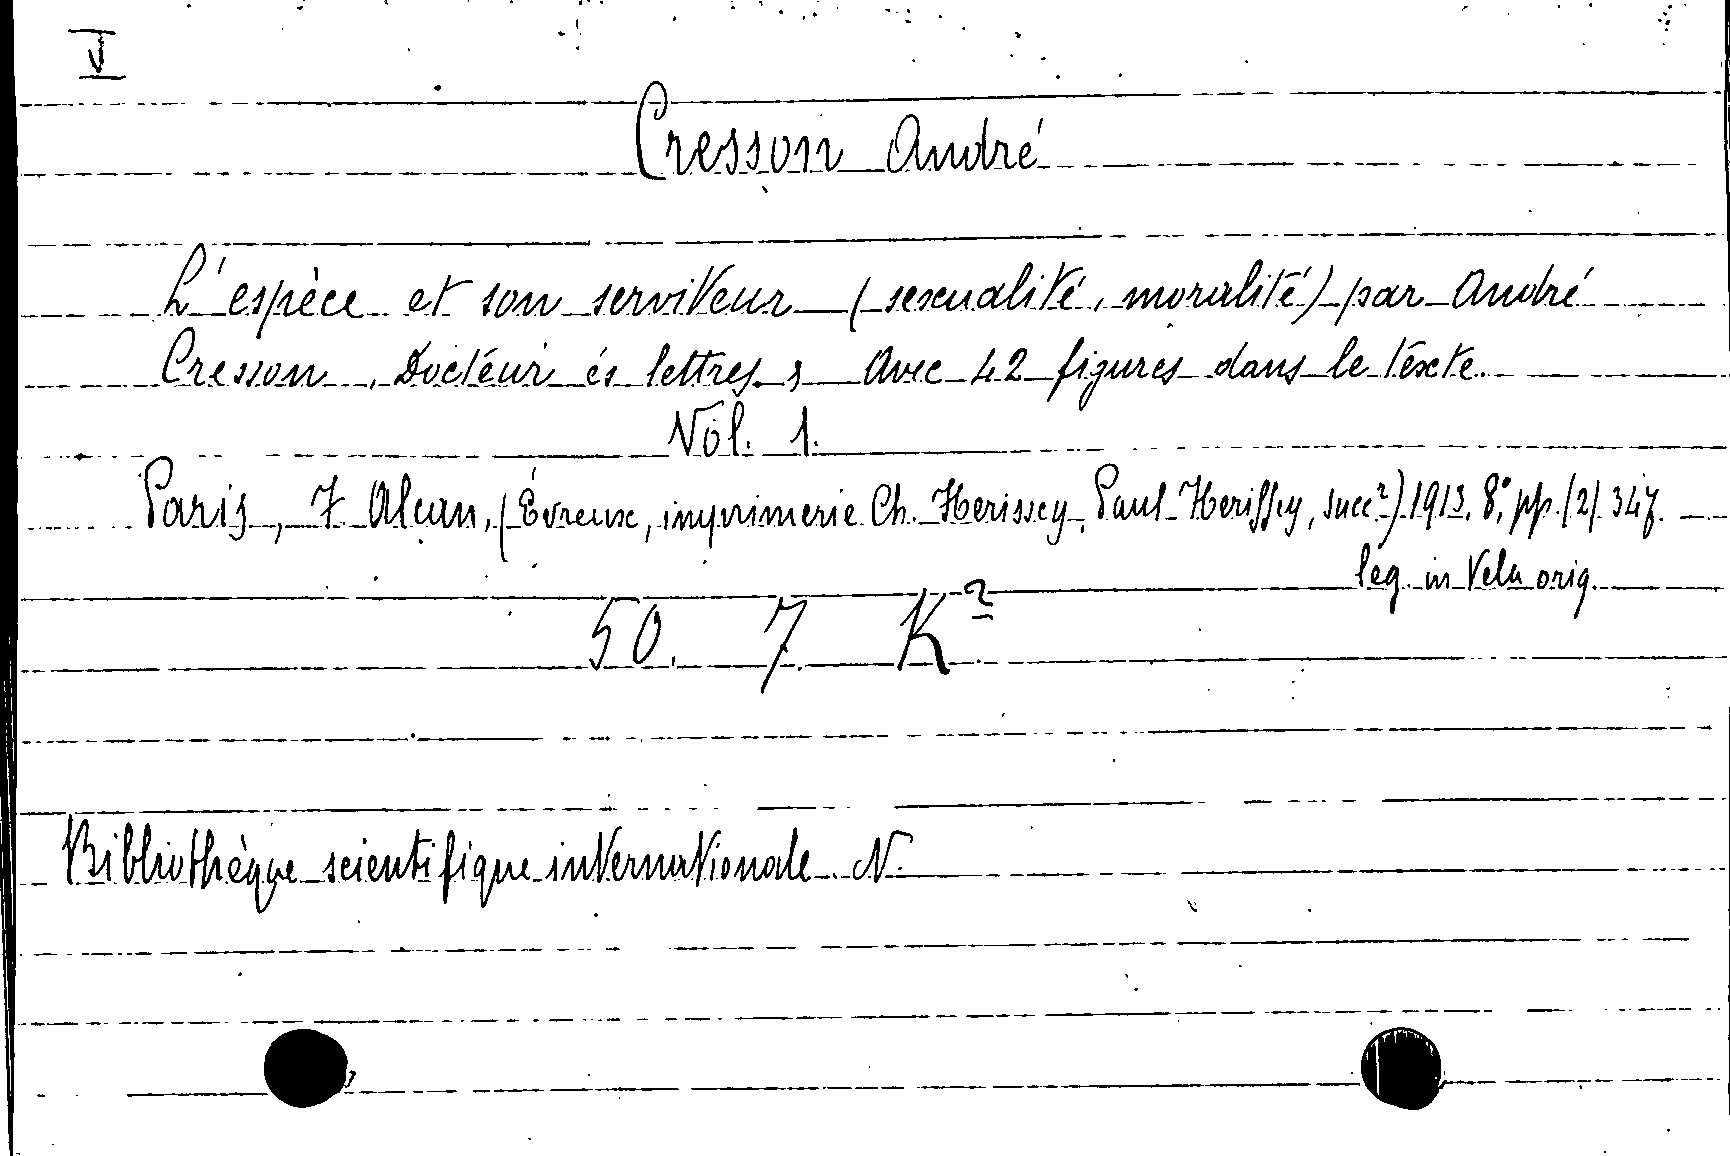 V
Cresson André
L'espèce et son serviteur (sexualité, moralité) par André
Cresson, Doctéur és lettres, Avec 42 figures dans le téxte.
Vol. 1.
Paris, F. Alcan, (Évreux, imprimerie Ch. Herissey, Paul Herissey, succ.r) 1913. 8.° pp. (2) 347.
leg. in tela orig.
50. 7. K²
Bibliothèque scientifique internationale. N.